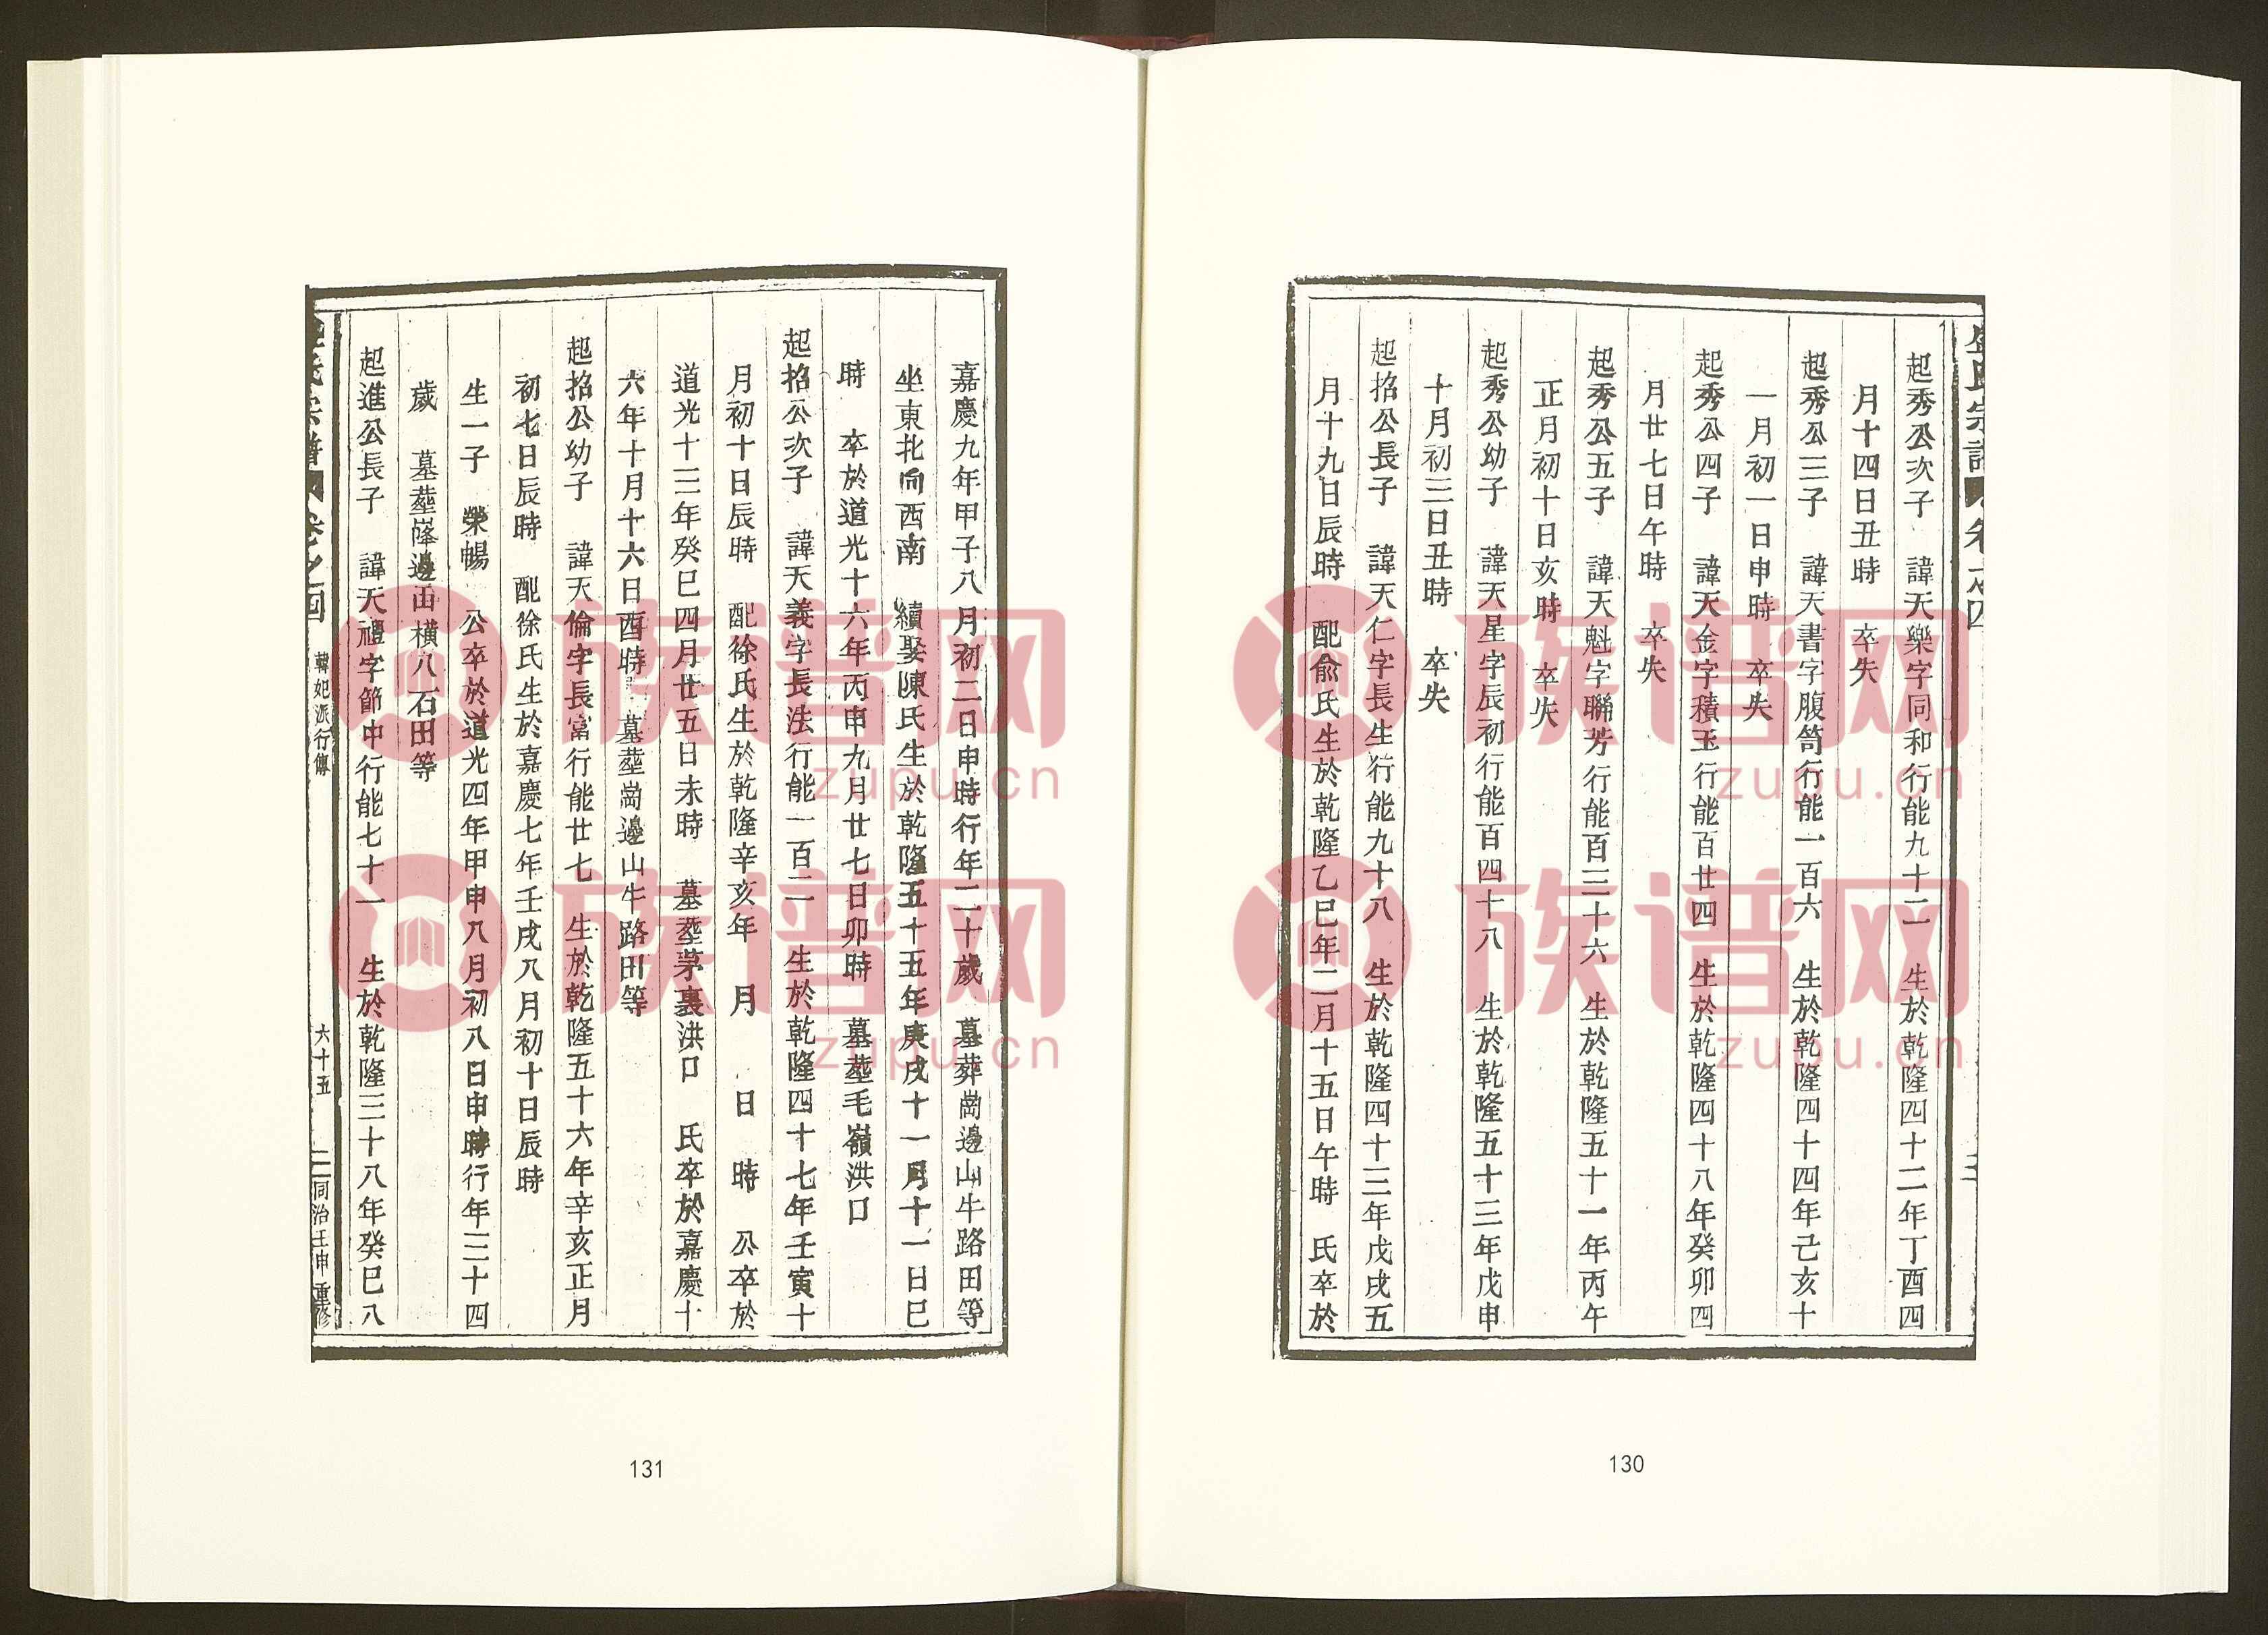 起秀公次子　諱天樂字同和行能九十二　生於乾隆四十二年丁酉四
月十四日丑時　卒失
起秀公三子　諱天書字腹笥行能一百六　生於乾隆四十四年己亥十
一月初一日申時　卒失
起秀公四子　諱天金字積玉行能百廿四　生於乾隆四十八年癸卯四
月廿七日午時　卒失
起秀公五子　諱天魁字聯芳行能百三十六　生於乾隆五十一年丙午
正月初十日亥時　卒失
起秀公幼子　諱天星字辰初行能百四十八　生於乾隆五十三年戊申
十月初三日丑時　卒失
起招公長子　諱天仁字長生行能九十八　生於乾隆四十三年戊戌五
月十九日辰時　配俞氏生於乾隆乙巳年二月十五日午時　氏卒於
130
嘉慶九年甲子八月初二日申時行年二十歲　墓葬崗邊山牛路田等
坐東北向西南　續娶陳氏生於乾隆五十五年庚戌十一月十一日巳
時　卒於道光十六年丙申九月廿七日卯時　墓塟毛嶺洪口
起招公次子　諱天義字長法行能一百二　生於乾隆四十七年壬寅十
月初十日辰時　配徐氏生於乾隆辛亥年　月　日　時　公卒於
道光十三年癸巳四月廿五日未時　墓塟茅裏洪口　氏卒於嘉慶十
六年十月十六日酉時　墓塟崗邊山牛路田等
起招公幼子　諱天倫字長富行能廿七　生於乾隆五十六年辛亥正月
初七日辰時　配徐氏生於嘉慶七年壬戌八月初十日辰時
生一子　榮暢　公卒於道光四年甲申八月初八日申時行年三十四
歲　墓塟邊山橫八石田等
起進公長子　諱天禮字節中行能七十一　生於乾隆三十八年癸巳八
氏宗譜　卷之四　韓妃派行傳　六十五　同治壬申重修
131
族谱网
zupu.cn
族谱网
zupu.cn
族谱网
zupu.cn
族谱网
zupu.cn